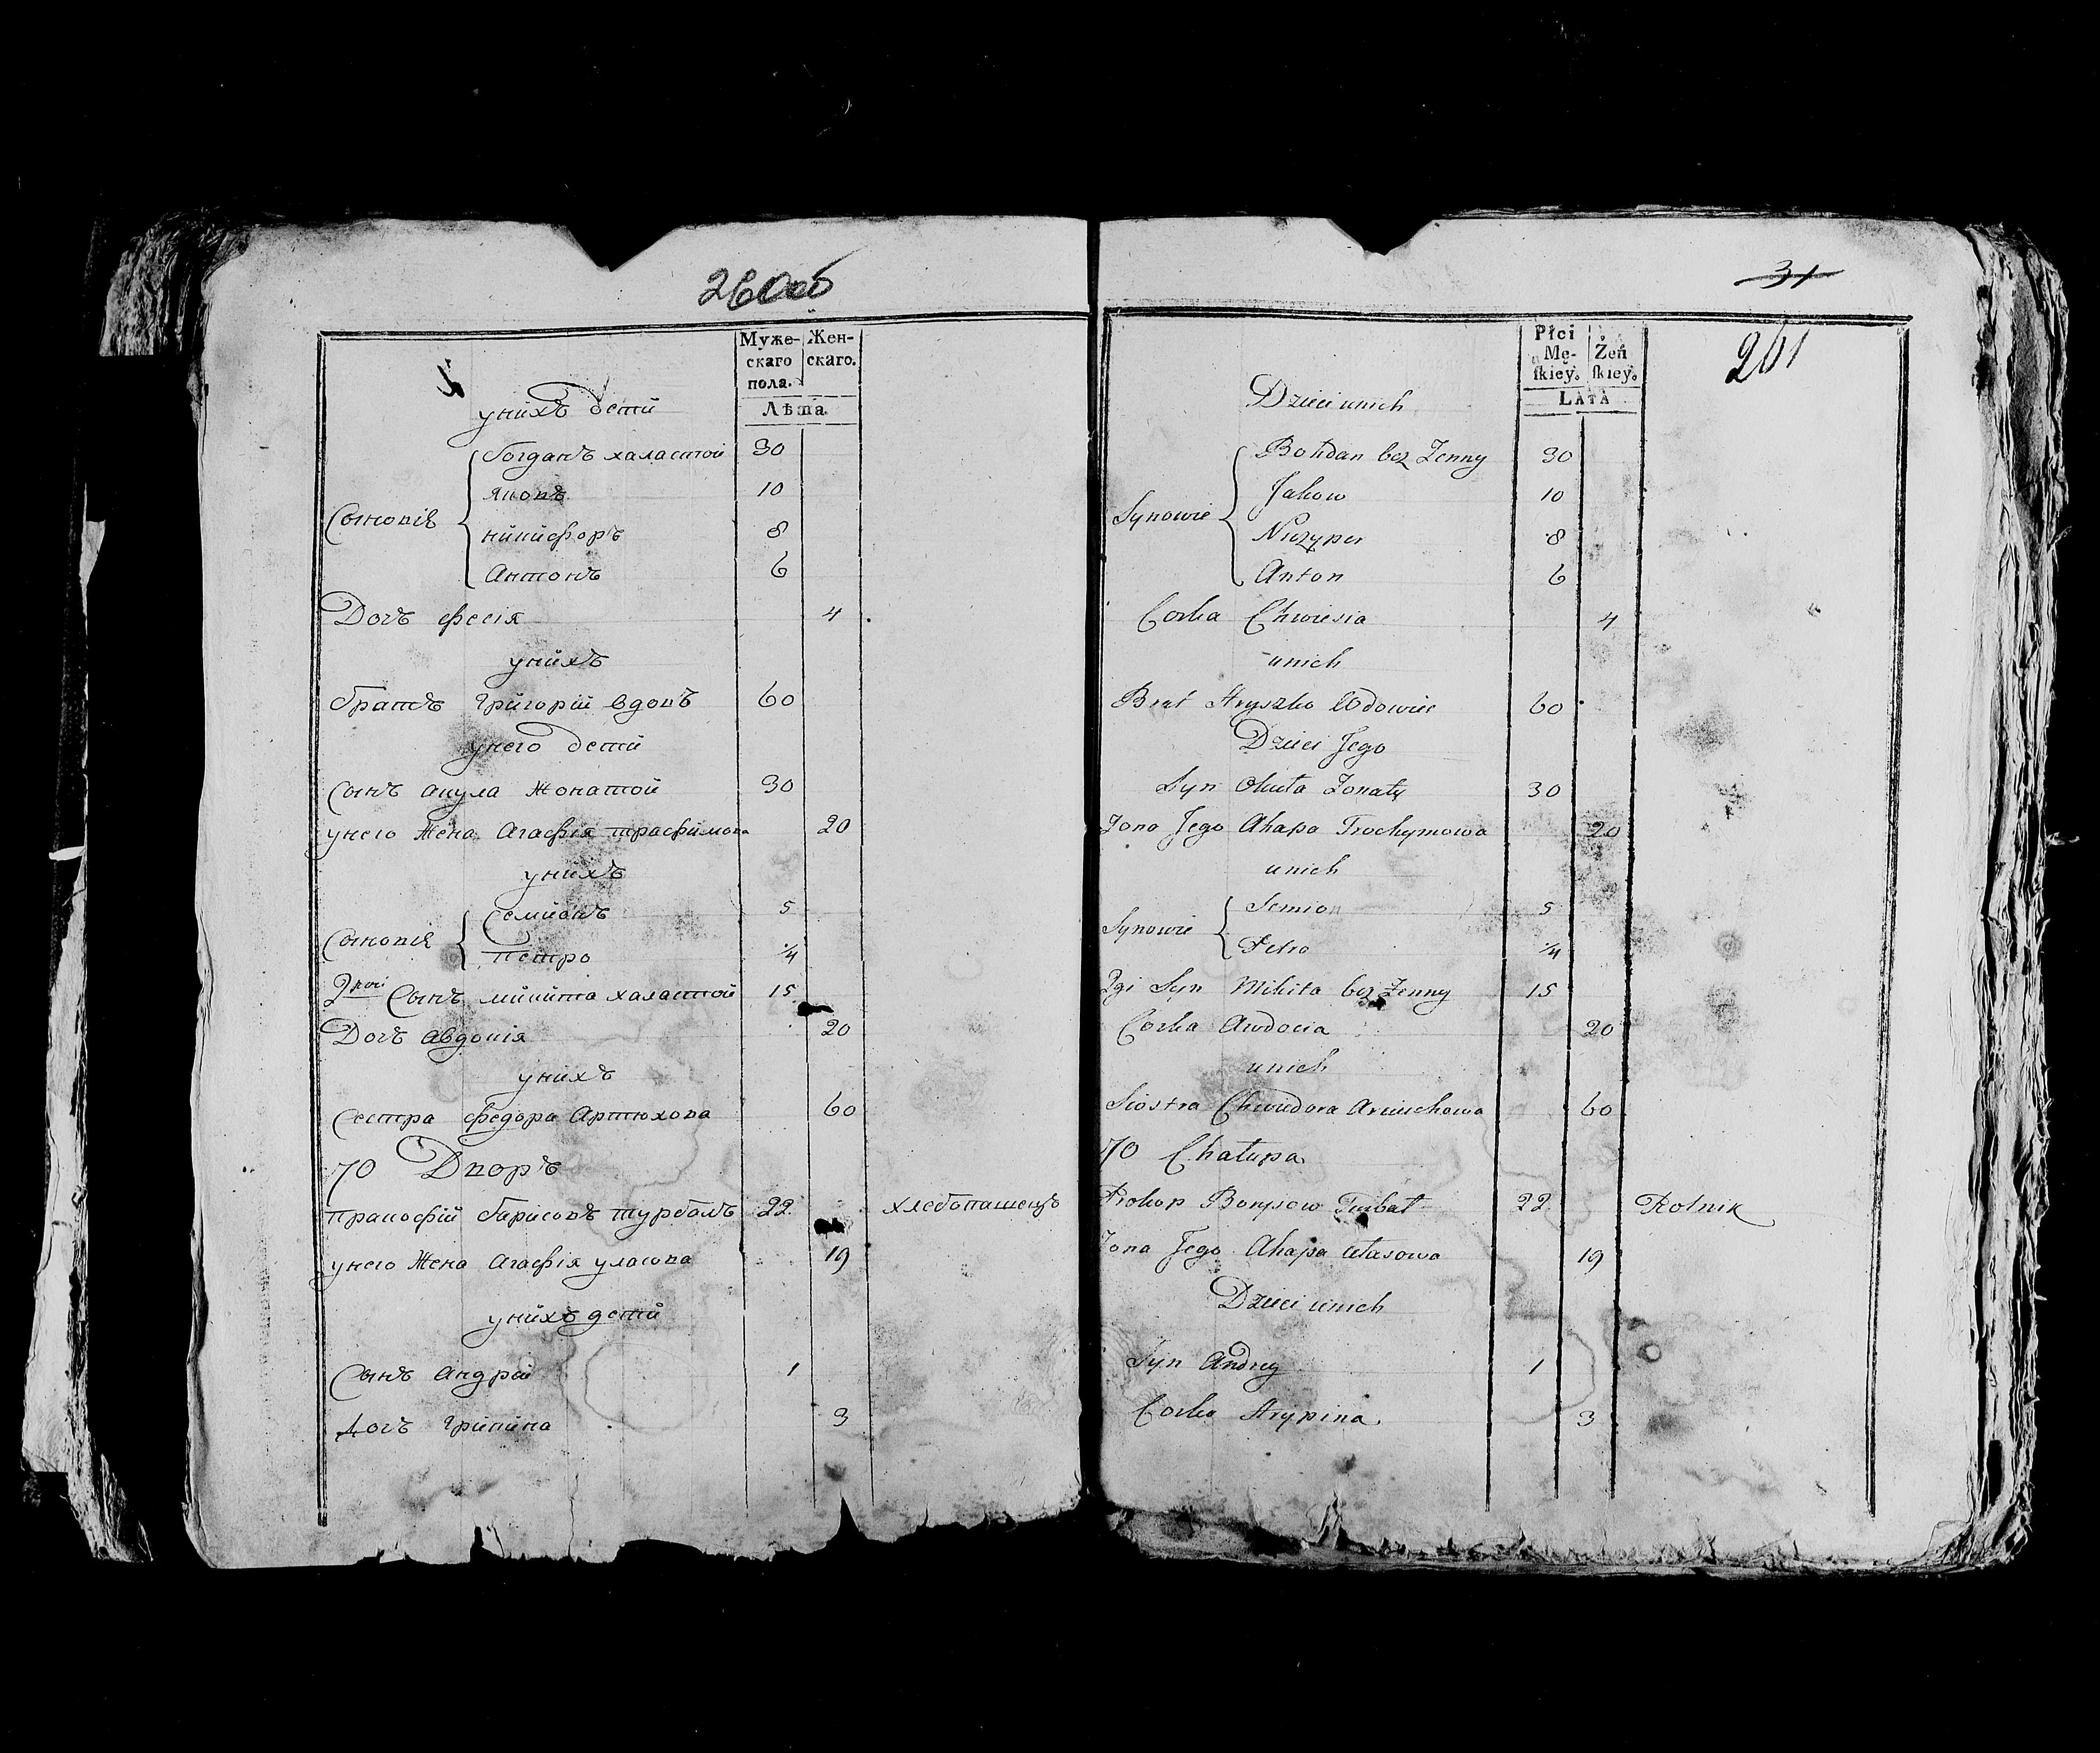 260об
Муже-
скаго
пола.
Жен-
скаго.
Лѣта
унихъ дети
Богданъ халастой 30
Яковъ 10
Сыновія
никифоръ 8
Антонъ 6
Дочъ фесія 4
унихъ
братъ григорій вдовъ 60
унего дети
Сынъ акула жонатой 30
унего жена Агафія трафимова 20
унихъ
Семионъ 5
Сыновія
петро 1/4
2хой Сынъ микита халастой 15
Дочъ авдокія 20
унихъ
сестра федора Артюхова 60
70 Дворъ
пракофій барисовъ турбалъ 22 хлебопашецъ
унего жена Агафія уласова 19
унихъ дети
Сынъ Андрій 1
дочъ грипина 3
31
261
Płci
Mę-
ſkiey.
Żeń
ſkiey.
LATA
Dzieci unich
Bohdan bez Zenny 30
Jakow 10
Synowie
Niczyper 8
Anton 6
Corka Chwiesia 4
unich
Brat Hryszko Wdowiec 60
Dzieci Jego
Syn Okuła Zonaty 30
Zona Jego Ahapa Trochymowa 20
unich
Semion 5
Synowie
Petro 1/4
2gi Syn Mikita bez Zenny 15
Corka Awdocia 20
unich
Siostra Chwiedora Arciuchowa 60
70 Chałupa
Prokop Borysow Turbał 22 Rolnik
Zona Jego Ahapa Ułasowa 19
Dzieci unich
Syn Andrey 1
Corka Hrypina 3